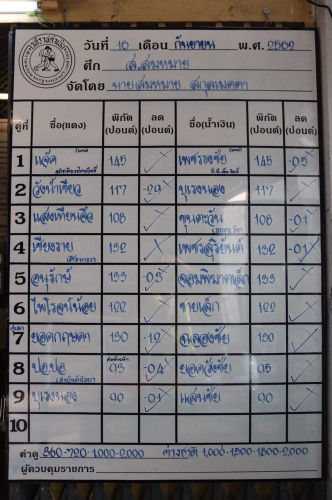 วันที่ 10 เดือน กันยายน พ.ศ. 2562
ศึก ส.สมหมาย
จัดโดย นายสมหมาย สกุลเมตตา
คู่ที่ ชื่อ(แดง) พิกัด (ปอนด์) ลด (ปอนด์) ชื่อ(น้ำเงิน) พิกัด (ปอนด์) ลด (ปอนด์)
1 แจ๊ค 145 เพชรธงชัย 145 -0.5
2 วังน้ำเขียว 117 -2.9 บุเรงนอง 117
3 แสงเทียนจิ๋ว 108 ขุนตะวัน 108 -0.1
4 เชียงราย 132 เพชรสุริยันต์ 132 -0.1
5 อนุรักษ์ 133 -0.5 จอมพิฆาตเล็ก 133
6 ไพโรจน์น้อย 122 ชายเล็ก 122
คู่เอก
7 ยอดกฤษดา 130 -1.2 ฉลองชัย 130
8 ปอ.ปอ 95 -0.4 ยอดธงชัย 95
9 บุเรงนอง 90 -0.1 แสนชัย 90
10
ค่าดู 360-720-1,000-2,000 ต่างชาติ 1,000-1,500-1,800-2,000
ผู้ควบคุมรายการ